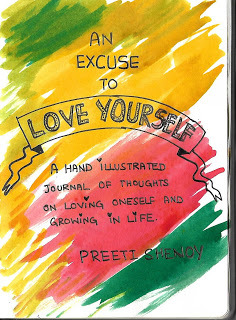 AN
EXCUSE
TO
LOVE YOURSELF
A HAND ILLUSTRATED
JOURNAL OF THOUGHTS
ON LOVING ONESELF AND
GROWING IN LIFE.
PREETI SHENOY